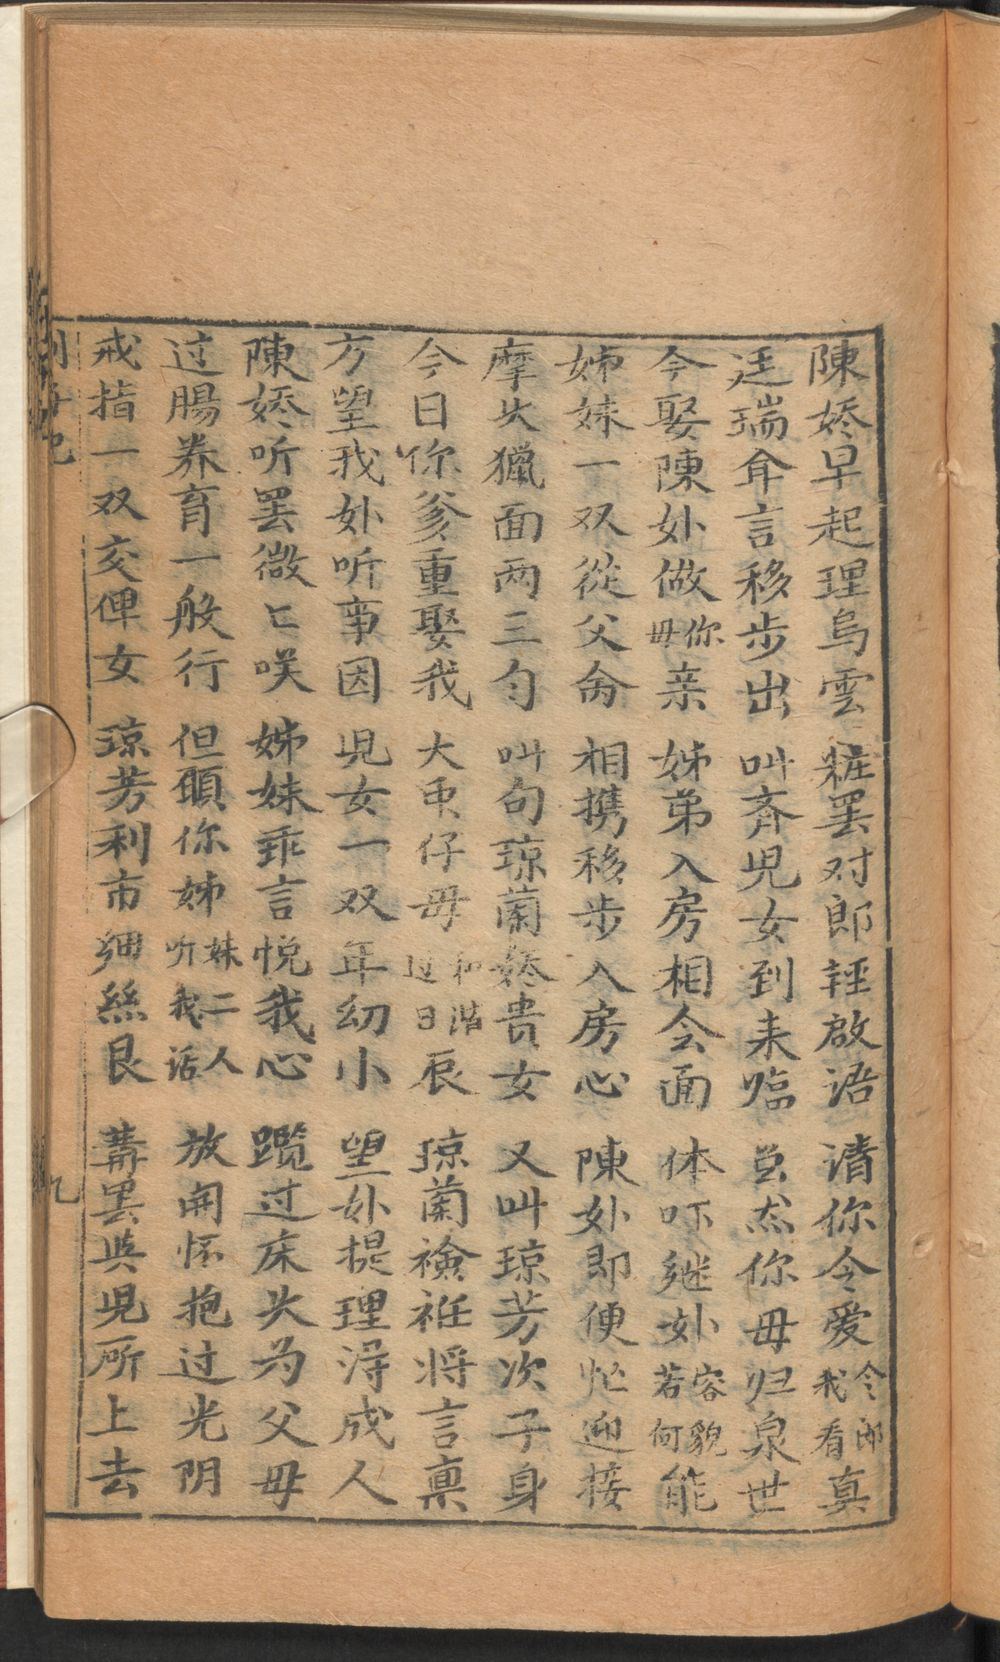 陳娇早起理烏雲 粧罢对郎誔啟语 请你令爱令郎我看真
廷瑞聞言移步出 叫齐児女到来临 虽然你毋归泉世
今娶陳妣做你毋亲 姊弟入房相会面 体吓继妣容貌若何能
姊妹一双從父命 相携移步入房心 陳妣即便忙迎接
摩头獵面两三匀 叫句琼蘭娇贵女 又叫琼芳次子身
今日你爹重娶我 大重仔毋和谐过日辰 琼蘭襝袵将言禀
方望我妣听事因 児女一双年幼小 望妣提理淂成人
陳娇听罢微匕咲 姊妹乖言悦我心 躐过床头为父毋
过腸养育一般行 但願你姊妹二人听我话 放開怀抱过光阴
戒指一双交俾女 琼芳利市 絲艮 講罢與児所上去
九